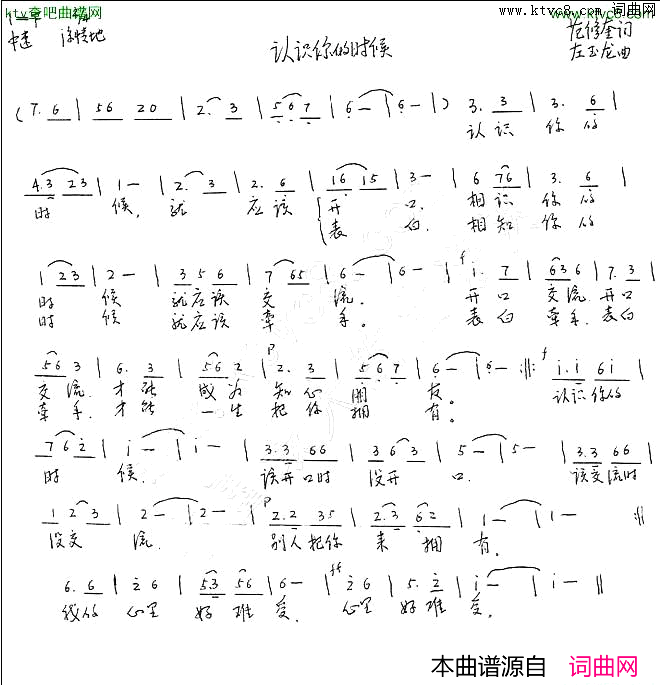 ktv奇吧曲谱网 www.ktvc8.com 词曲网
中速 深情地
认识你的时候
左玉龙曲
(7. 6 | 56 20 | 2. 3 | 5 6 7 | 6 — | 6 — | ) 3. 3 | 3. 6 |
认识 你的
4.3 23 | 1 — | 2. 3 | 2. 6 | 16 15 | 3 — | 6 76 | 3. 6 |
时 候, 就 应该 开 口. 相识 你的
表 白. 相知 你的
1 23 | 2 — | 3 5 6 | 7 65 | 6 — | 6 — | f i. 7 | 636 | 7. 3 |
时 候 就应该 交 流。 开口 交流. 开口
时 候 就应该 牵 手。 表白 牵手. 表白
56 3 | 6. 3 | 56 2 | p 2. 3 | 5 6 7 | 6 — | 6 — :||: f i.i 6i |
交流. 才能 成为 知心 朋 友。 认识你的
牵手. 才能 一生 把你 拥 有。
7 6 2 | i — | i — | 3.3 66 | 3 6 3 | 5 — | 5 — | 3.3 66 |
时 候. 该开口时 没开 口. 该交流时
1 2 3 | 2 — | 2 — | p 2.2 35 | 2.3 62 | 1 — | 1 — :||
没交 流. 别人把你 来 拥 有.
6. 6 | 2 6 | 53 56 | 6 — | ff 2 6 | 5. 2 | i — | i — ||
我的 心里 好难 受. 心里 好难 受.
本曲谱源自 词曲网